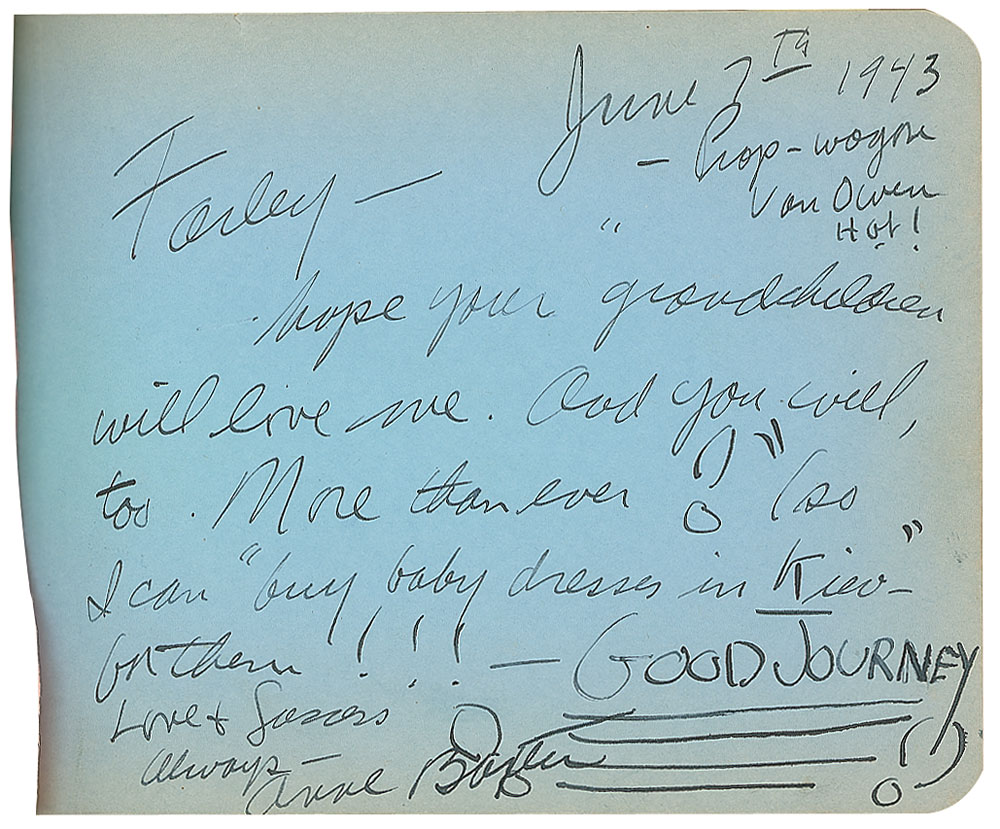 June 7th 1943
- Prop-wagon
Van Owen
Hot!
Farley -
hope your "grandchildren
will love me. And you will,
too. More than ever!" (so
I can "buy baby dresses in Kiev"-
for them!!! - GOOD JOURNEY!
Love &
Always -
Anne Baxter